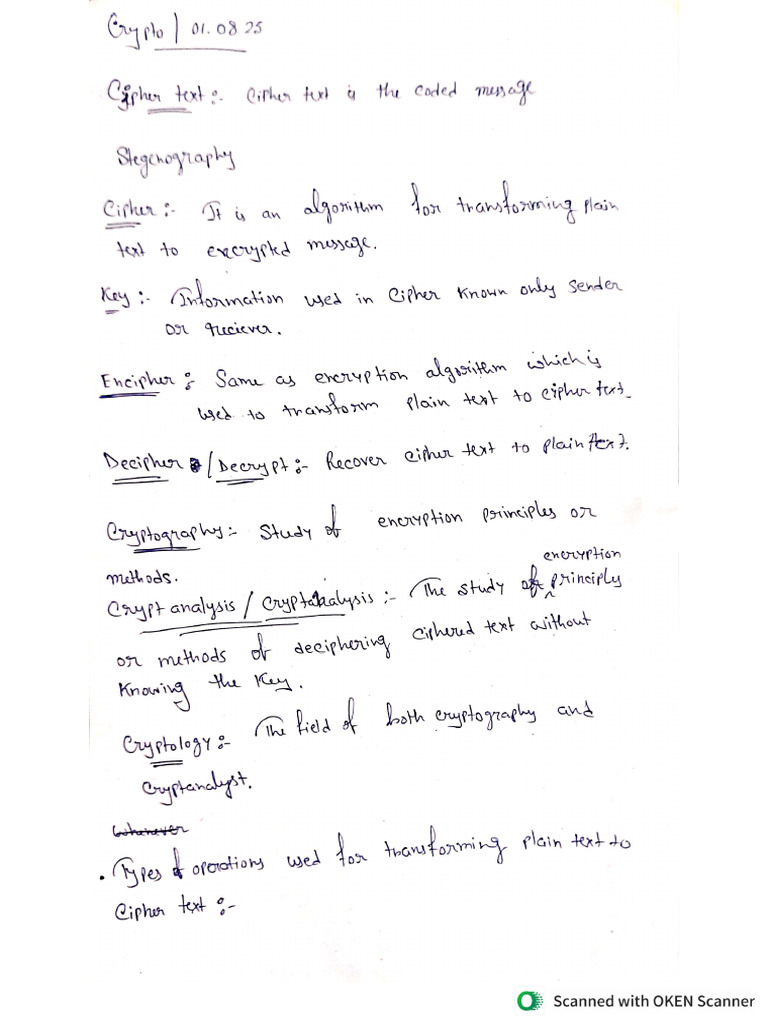 Crypto | 01.08.25
Cipher text :- Cipher text is the coded message
Stegenography
Cipher :- It is an algorithm for transforming plain
text to encrypted message.
Key :- Information used in Cipher known only sender
or reciever.
Encipher : Same as encryption algorithm which is
used to transform plain text to cipher text.
Decipher / Decrypt :- Recover cipher text to plain text.
Cryptography :- Study of encryption principles or
methods.
encryption
Crypt analysis / Cryptanalysis :- The study of principly
or methods of deciphering ciphered text without
knowing the key.
Cryptology :- The field of both cryptography and
Cryptanalyst.
Whenever
. Types of operations used for transforming plain text to
Cipher text :-
Scanned with OKEN Scanner